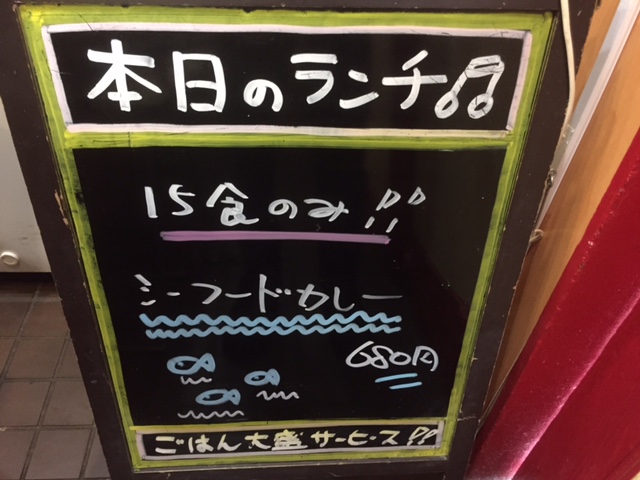 本日のランチ♫
15食のみ!!
シーフードカレー
680円
ごはん大盛サービス!!